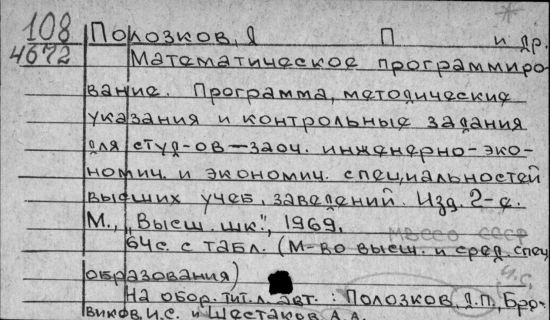 108 Полозков, Д П и др.
4672 Математическое программиро-
вание. Программа, методические
указания и контрольные задания
для студ-ов — заоч. инженерно-эко-
номич. и экономич. специальностей
высших учеб. заведений. Изд. 2-е.
М., „Высш. шк.", 1969.
МВССО СССР
64с. с табл. (М-во высш. и сред. спец
образования) И.С.
На обор. тит. л. авт. : Полозков, Д.П., Бро-
виков, И.С. и Шестаков А.А.